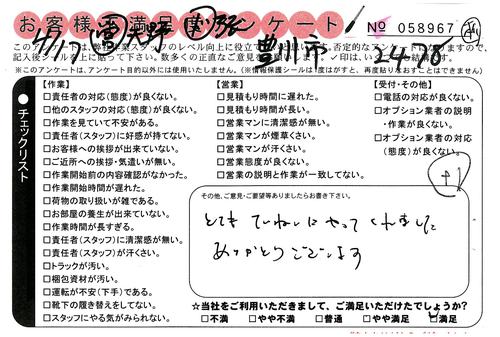 お客様満足度アンケート
№ 058967
豊川市
※このアンケートは、アンケート目的以外には使用いたしません。（※情報保護シールは1度はがすと、再度貼りなおすことはできません）
チェックリスト
【作業】
□責任者の対応（態度）が良くない。
□他のスタッフの対応（態度）が良くない。
□作業を見ていて不安がある。
□責任者（スタッフ）に好感が持てない。
□お客様への挨拶が出来ていない。
□ご近所への挨拶・気遣いが無い。
□作業開始前の内容確認がなかった。
□作業開始時間が遅れた。
□荷物の取り扱いが雑である。
□お部屋の養生が出来ていない。
□作業時間が長すぎる。
□責任者（スタッフ）に清潔感が無い。
□責任者（スタッフ）が汗くさい。
□トラックが汚い。
□梱包資材が汚い。
□運転が不安（下手）である。
□靴下の履き替えをしてない。
□スタッフにやる気がみられない。
【営業】
□見積もり時間に遅れた。
□見積もり時間が長い。
□営業マンに清潔感が無い。
□営業マンが煙草くさい。
□営業マンが汗くさい。
□営業態度が良くない。
□営業の説明と作業が一致してない。
【受付・その他】
□電話の対応が良くない。
□オプション業者の説明
・作業が良くない。
□オプション業者の対応
（態度）が良くない。
その他、ご意見・ご要望等ありましたらお書き下さい。
とても ていねいにやってくれました
ありがとうございます
☆当社をご利用いただきまして、ご満足いただけたでしょうか？
□不満 □やや不満 □普通 □やや満足 □満足